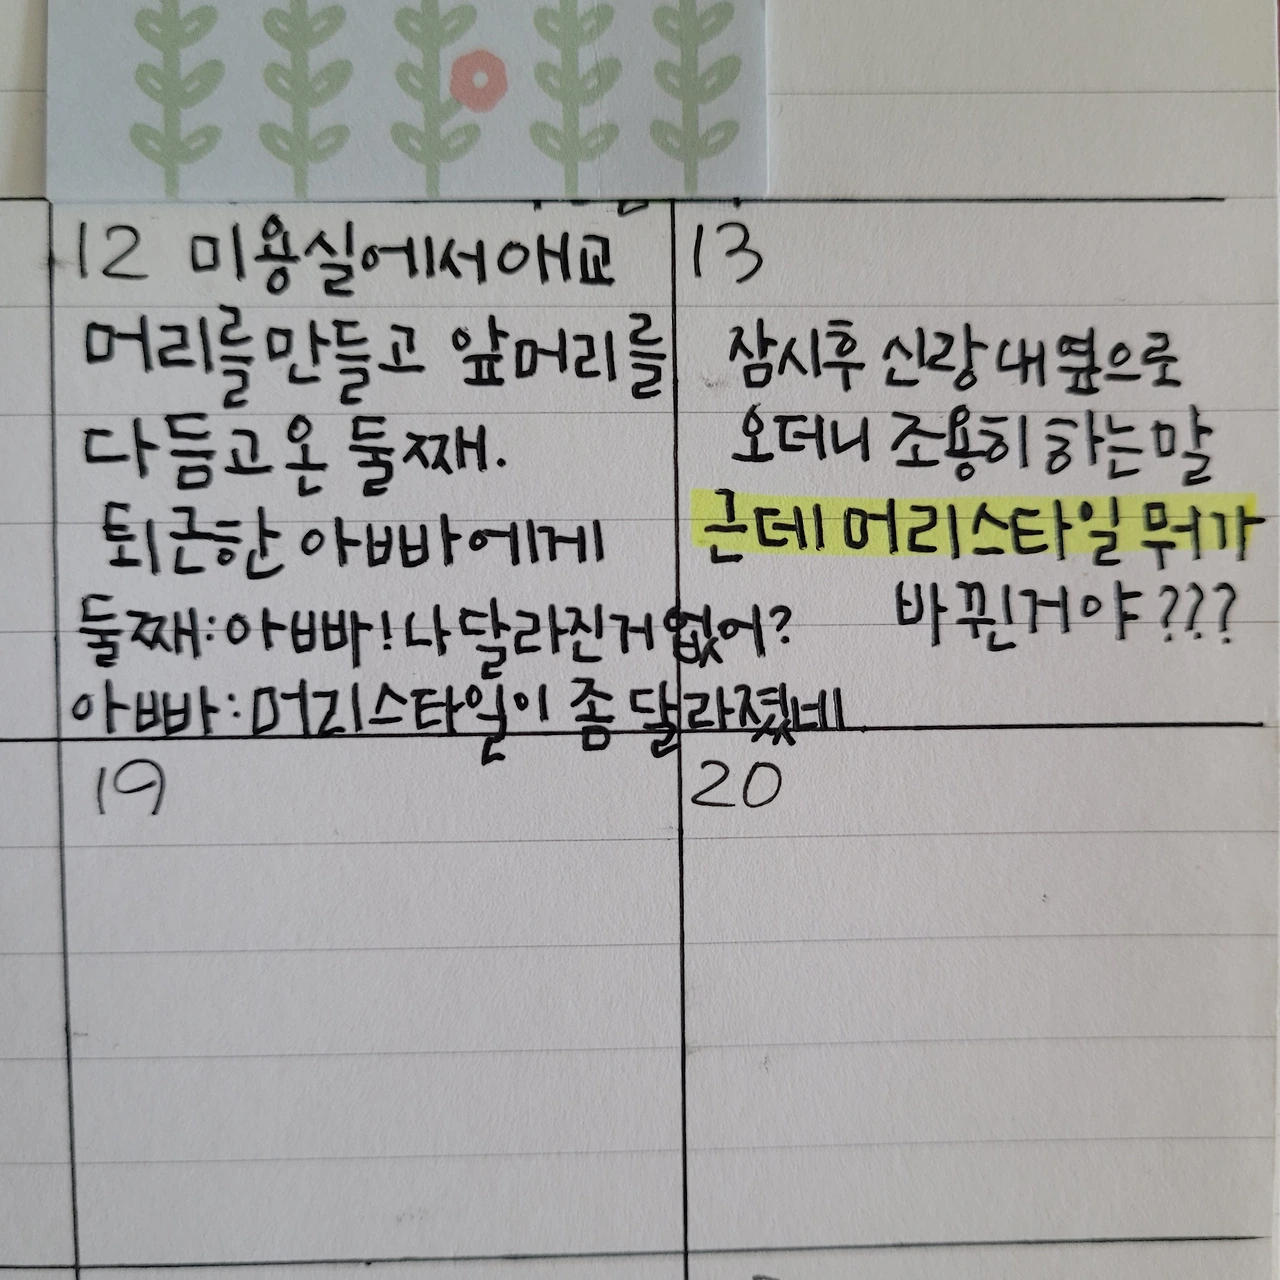 12 미용실에서 애교
머리를 만들고 앞머리를
다듬고 온 둘째.
퇴근한 아빠에게
둘째:아빠!나 달라진거 없어?
아빠:머리스타일이 좀 달라졌네
13
잠시후 신랑 내 옆으로
오더니 조용히 하는 말
근데 머리스타일 뭐가
바뀐거야???
19
20